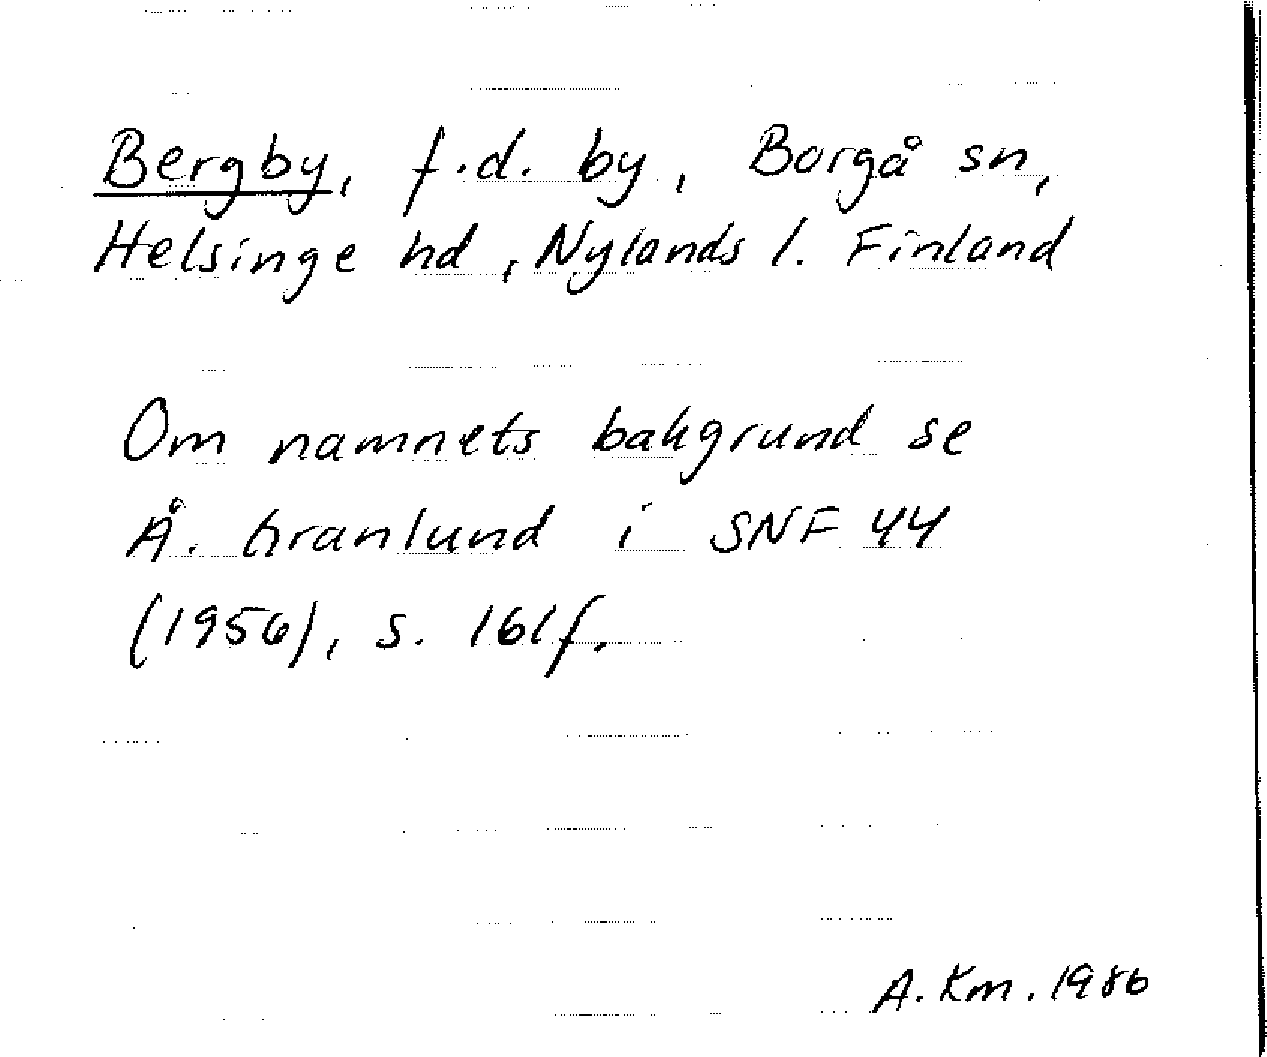 Bergby, f.d. by, Borgå sn,
Helsinge hd, Nylands l. Finland
Om namnets bakgrund se
Å. Granlund i SNF 44
(1956), s. 161f.
A. Km. 1986